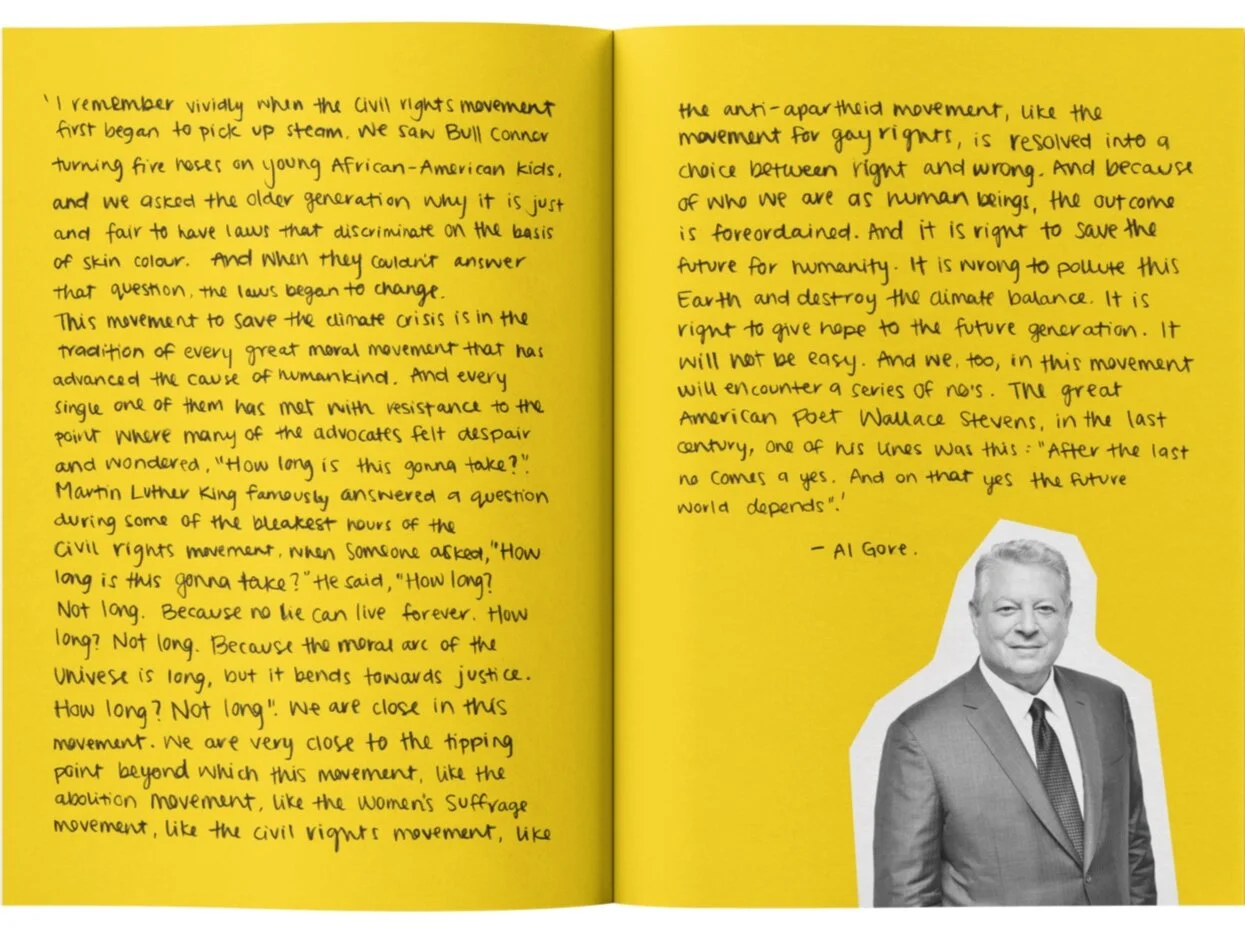 'I remember vividly when the civil rights movement
first began to pick up steam. We saw Bull Connor
turning fire hoses on young African-American kids,
and we asked the older generation why it is just
and fair to have laws that discriminate on the basis
of skin colour. And when they couldn't answer
that question, the laws began to change.
This movement to save the climate crisis is in the
tradition of every great moral movement that has
advanced the cause of humankind. And every
single one of them has met with resistance to the
point where many of the advocates felt despair
and wondered, "How long is this gonna take?".
Martin Luther King famously answered a question
during some of the bleakest hours of the
Civil rights movement, when someone asked, "How
long is this gonna take?" He said, "How long?
Not long. Because no lie can live forever. How
long? Not long. Because the moral arc of the
Univese is long, but it bends towards justice.
How long? Not long". We are close in this
movement. We are very close to the tipping
point beyond which this movement, like the
abolition movement, like the Women's Suffrage
movement, like the civil rights movement, like
the anti-apartheid movement, like the
movement for gay rights, is resolved into a
choice between right and wrong. And because
of who we are as human beings, the outcome
is foreordained. And it is right to save the
future for humanity. It is wrong to pollute this
Earth and destroy the climate balance. It is
right to give hope to the future generation. It
will not be easy. And we, too, in this movement
will encounter a series of no's. The great
American Poet Wallace Stevens, in the last
century, one of his lines was this: "After the last
no comes a yes. And on that yes the future
world depends".'
- Al Gore.